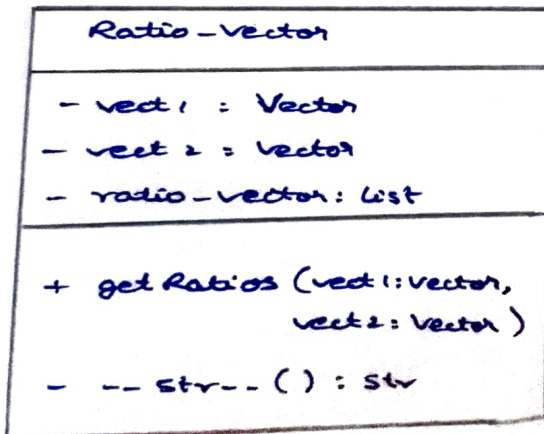 Ratio-Vector
- vect1 : Vector
- vect2 : Vector
- ratio-vector : List
+ getRatios (vect1: vector,
vect2: Vector )
- -- str-- () : str